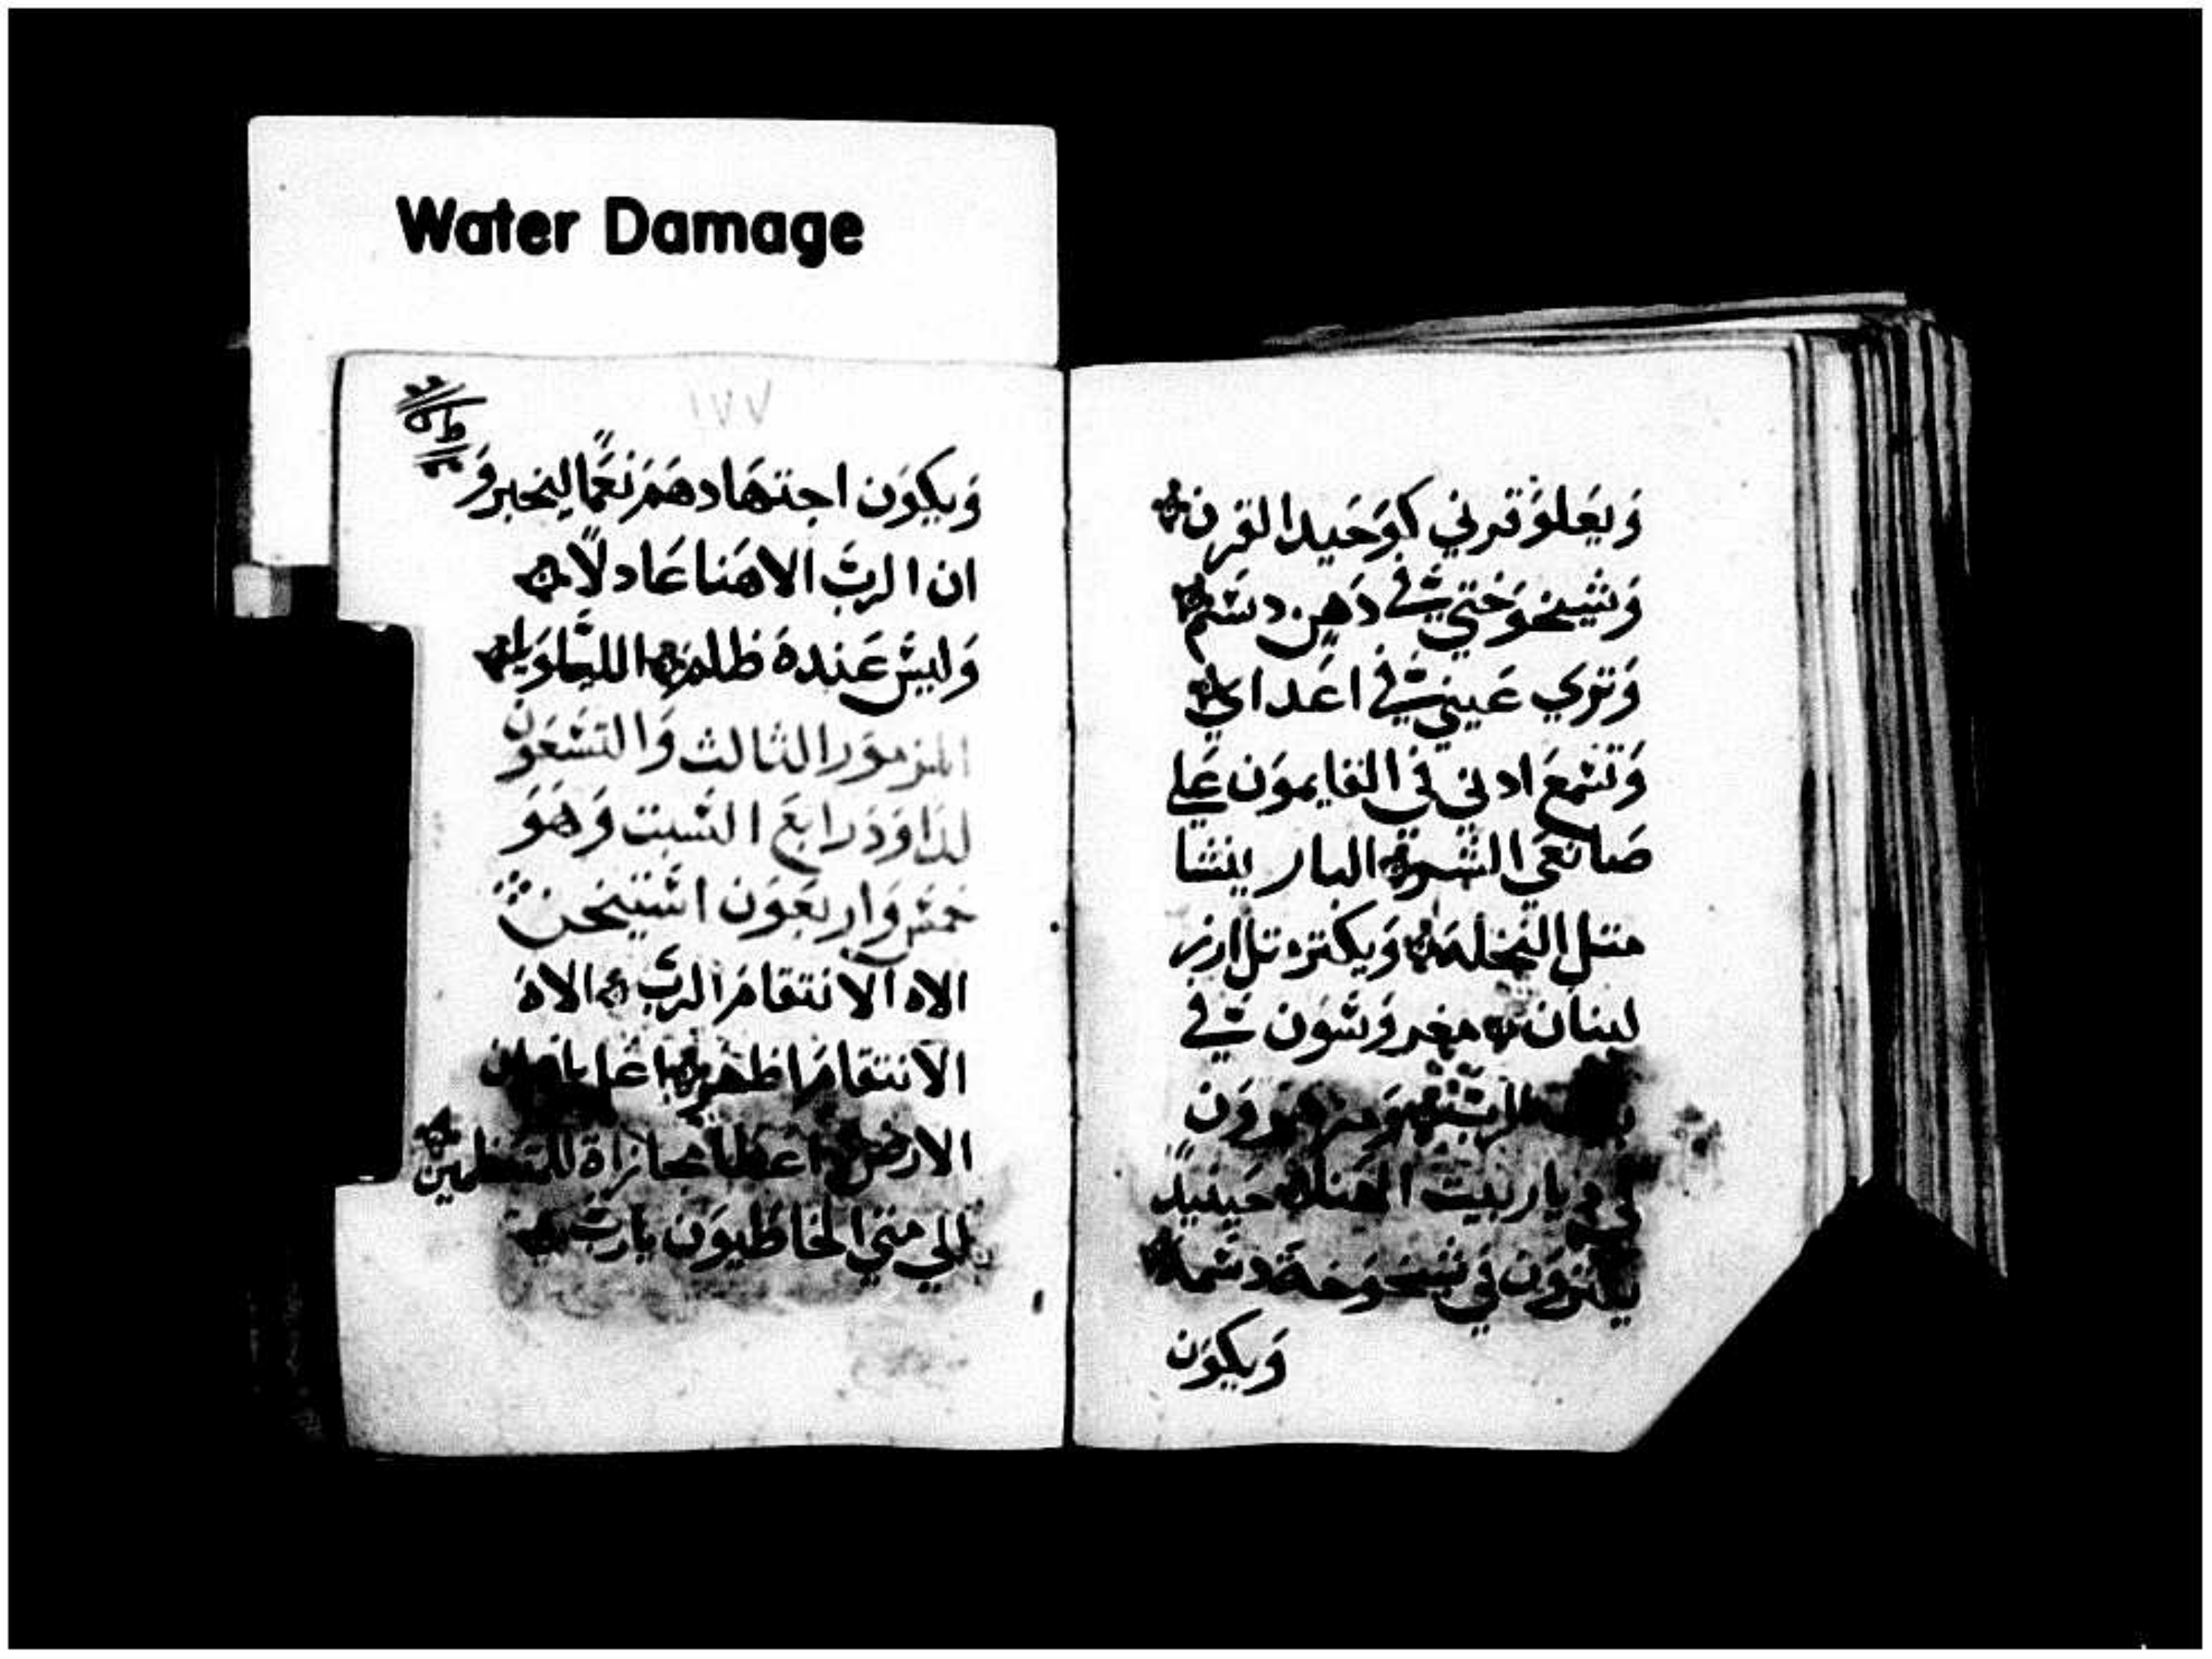 Water Damage
وَيعَلوَ قرني كوَحَيد القرن
وَشيخوَختي في دَهن دسم
وَترَي عَيني في اعَداي
وَتسَمعَ ادني في القايموَن عَلي
صَانعَي الشر البار ينشا
متل النخلة وَيكتر متل ارز
لبنان مغروَسَون في
بيت الرب وَمزهروَن
في ديار بيت الهنا حينيدً
يكتروَن في شيخوَخة دسمة
وَيكوَن
١٧٧
وَيكوَن اجتهَادهَم نعَمًا ليخبروَ
ان الربَ الاهَنا عَادلًا
وَليسَ عَندهَ ظلم الليلويا
المزموَر الثالث وَالتسَعَون
لدَاوَدَ رابعَ السَبت وَهَوَ
خمسَ وَاربعَوَن اسَتيخن
الاه الانتقامَ الربَ الاهَ
الانتقامَ اظهر
الارض اعَط مجازاة للمتعظمين
الي متي الخاطيوَن يارب